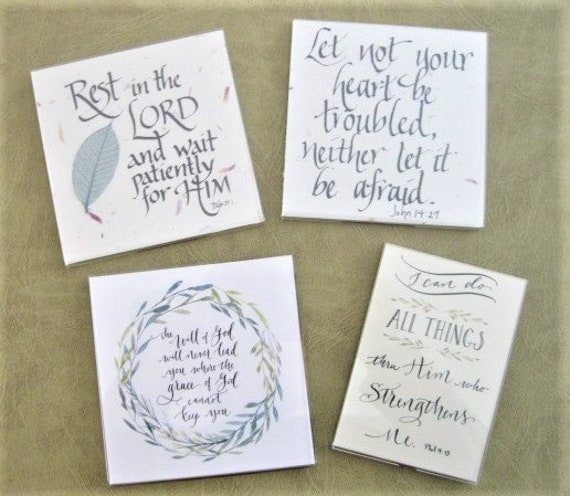 Rest in the
LORD
and wait
patiently
for HIM
Let not your
heart be
troubled,
neither let it
be afraid.
John 14:27
the Will of God
will never lead
you where the
grace of God
cannot
keep you
I can do
ALL THINGS
thru Him who
Strengthens
Me.